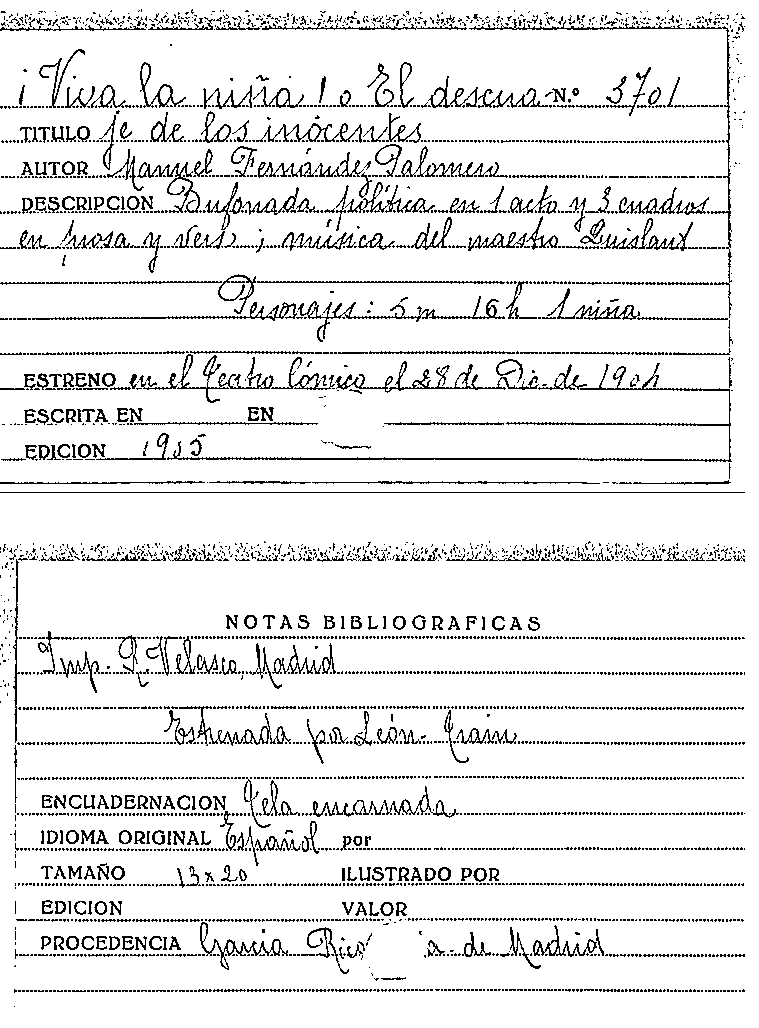 ¡Viva la niña! o El descua- N.º 3701
TITULO je de los inocentes
AUTOR Manuel Fernández Palomero
DESCRIPCION Bufonada política en 1 acto y 3 cuadros
en prosa y verso; música del maestro Quislant
Personajes: 5 m 16 h 1 niña
ESTRENO en el Teatro Cómico el 28 de Dic. de 1904
ESCRITA EN EN
EDICION 1905
NOTAS BIBLIOGRAFICAS
Imp. R. Velasco, Madrid
Estrenada por León-
ENCUADERNACION Tela encarnada
IDIOMA ORIGINAL Español por
TAMAÑO 13 x 20 ILUSTRADO POR
EDICION VALOR
PROCEDENCIA García Rico a. de Madrid